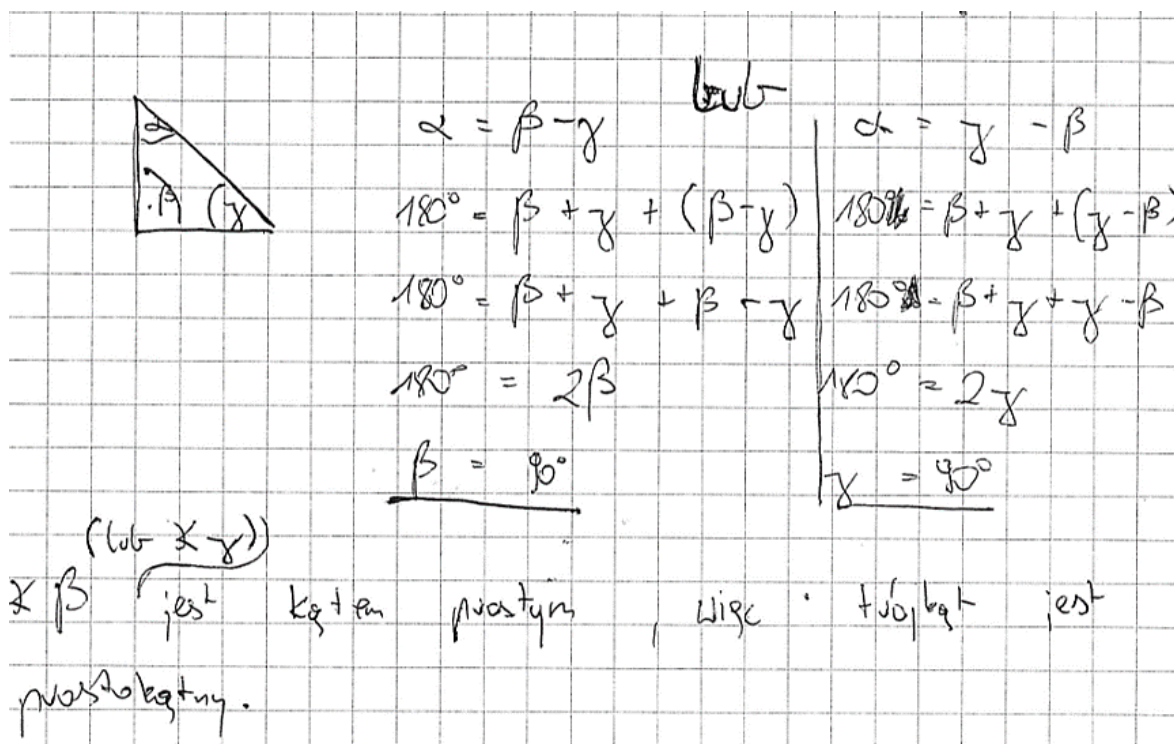 lub
α
β
γ
α = β - γ
180° = β + γ + (β - γ)
180° = β + γ + β - γ
180° = 2β
β = 90°
α = γ - β
180° = β + γ + (γ - β)
180° = β + γ + γ - β
180° = 2γ
γ = 90°
(lub ∢ γ)
∢ β jest kątem prostym, więc trójkąt jest
prostokątny.